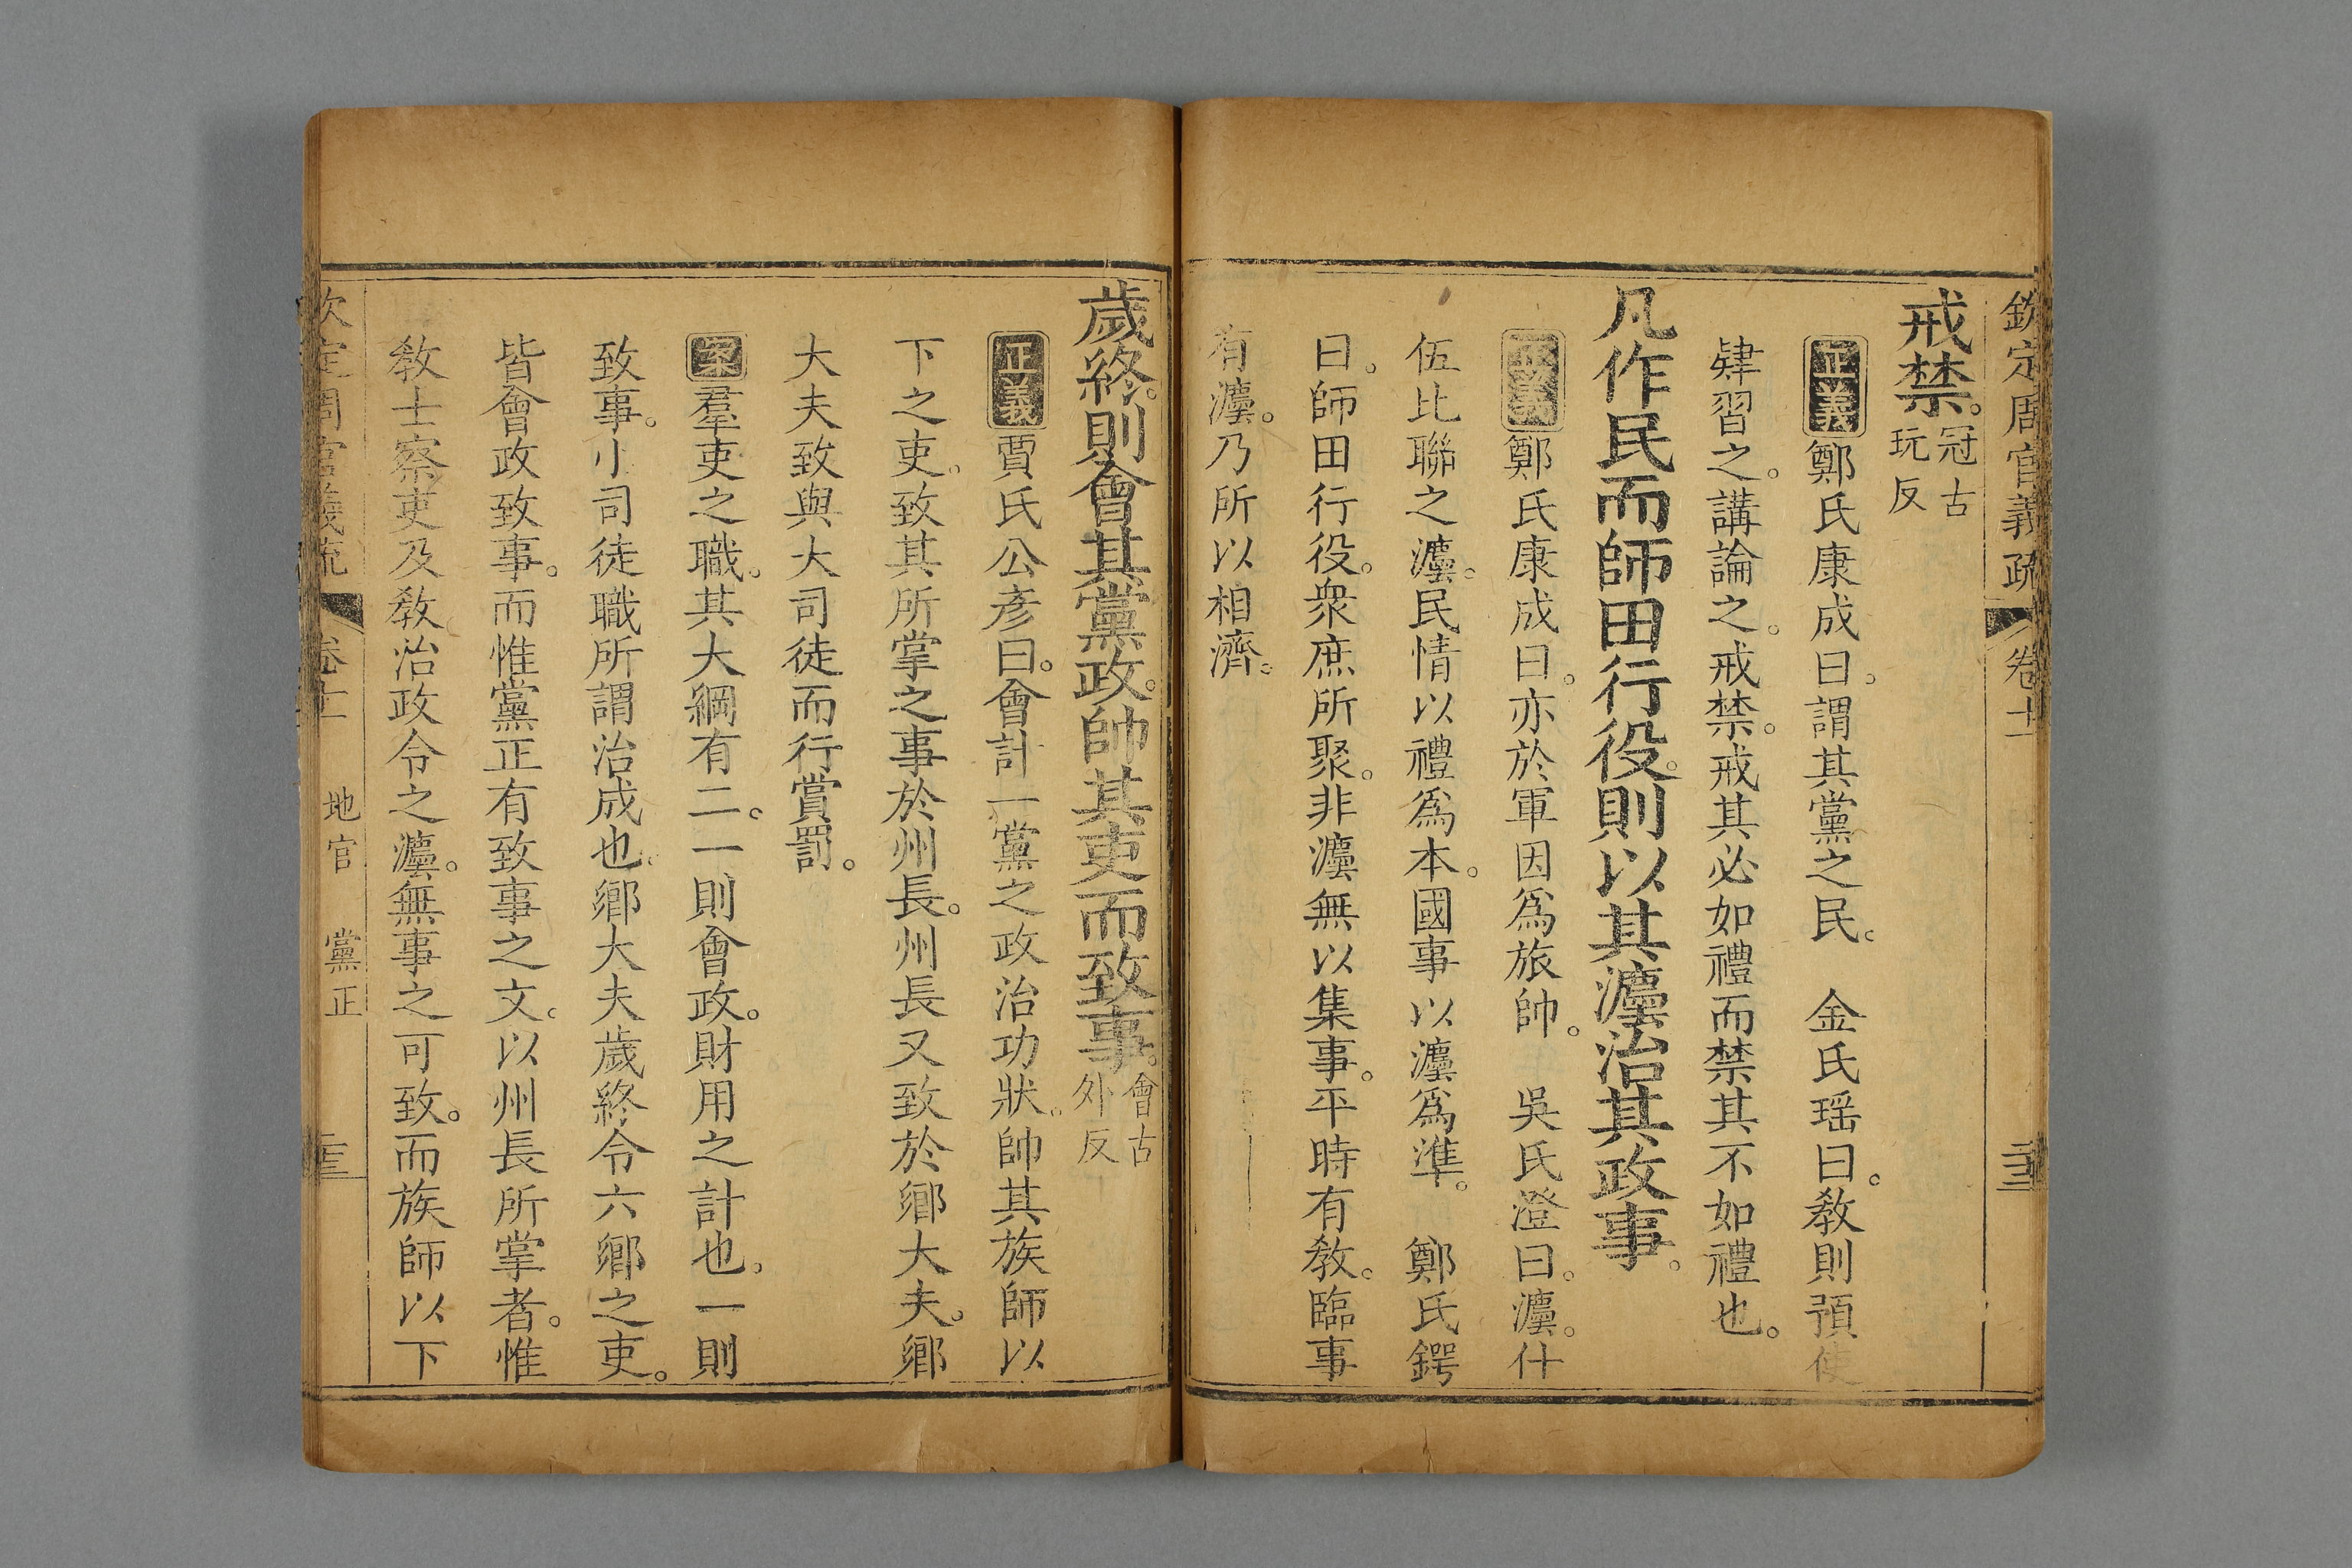 欽定周官義疏 卷十一
戒禁。冠古玩反
正義鄭氏康成曰。謂其黨之民。 金氏瑶曰。敎則預使
肄習之。講論之。戒禁。戒其必如禮而禁其不如禮也。
凡作民而師田行役。則以其灋治其政事。
正義鄭氏康成曰。亦於軍因爲旅帥。 吳氏澄曰。灋。什
伍比聯之灋。民情以禮爲本。國事以灋爲準。 鄭氏鍔
曰。師田行役。衆庶所聚。非灋無以集事。平時有敎。臨事
有灋。乃所以相濟。
歲終。則會其黨政。帥其吏而致事。會古外反
正義賈氏公彥曰。會計一黨之政治功狀。帥其族師以
下之吏。致其所掌之事於州長。州長又致於鄉大夫。鄉
大夫致與大司徒而行賞罰。
案羣吏之職。其大綱有二。一則會政。財用之計也。一則
致事。小司徒職所謂治成也。鄉大夫歲終令六鄉之吏。
皆會政致事。而惟黨正有致事之文。以州長所掌者。惟
敎士察吏及敎治政令之灋。無事之可致。而族師以下
欽定周官義疏 卷十一 地官 黨正